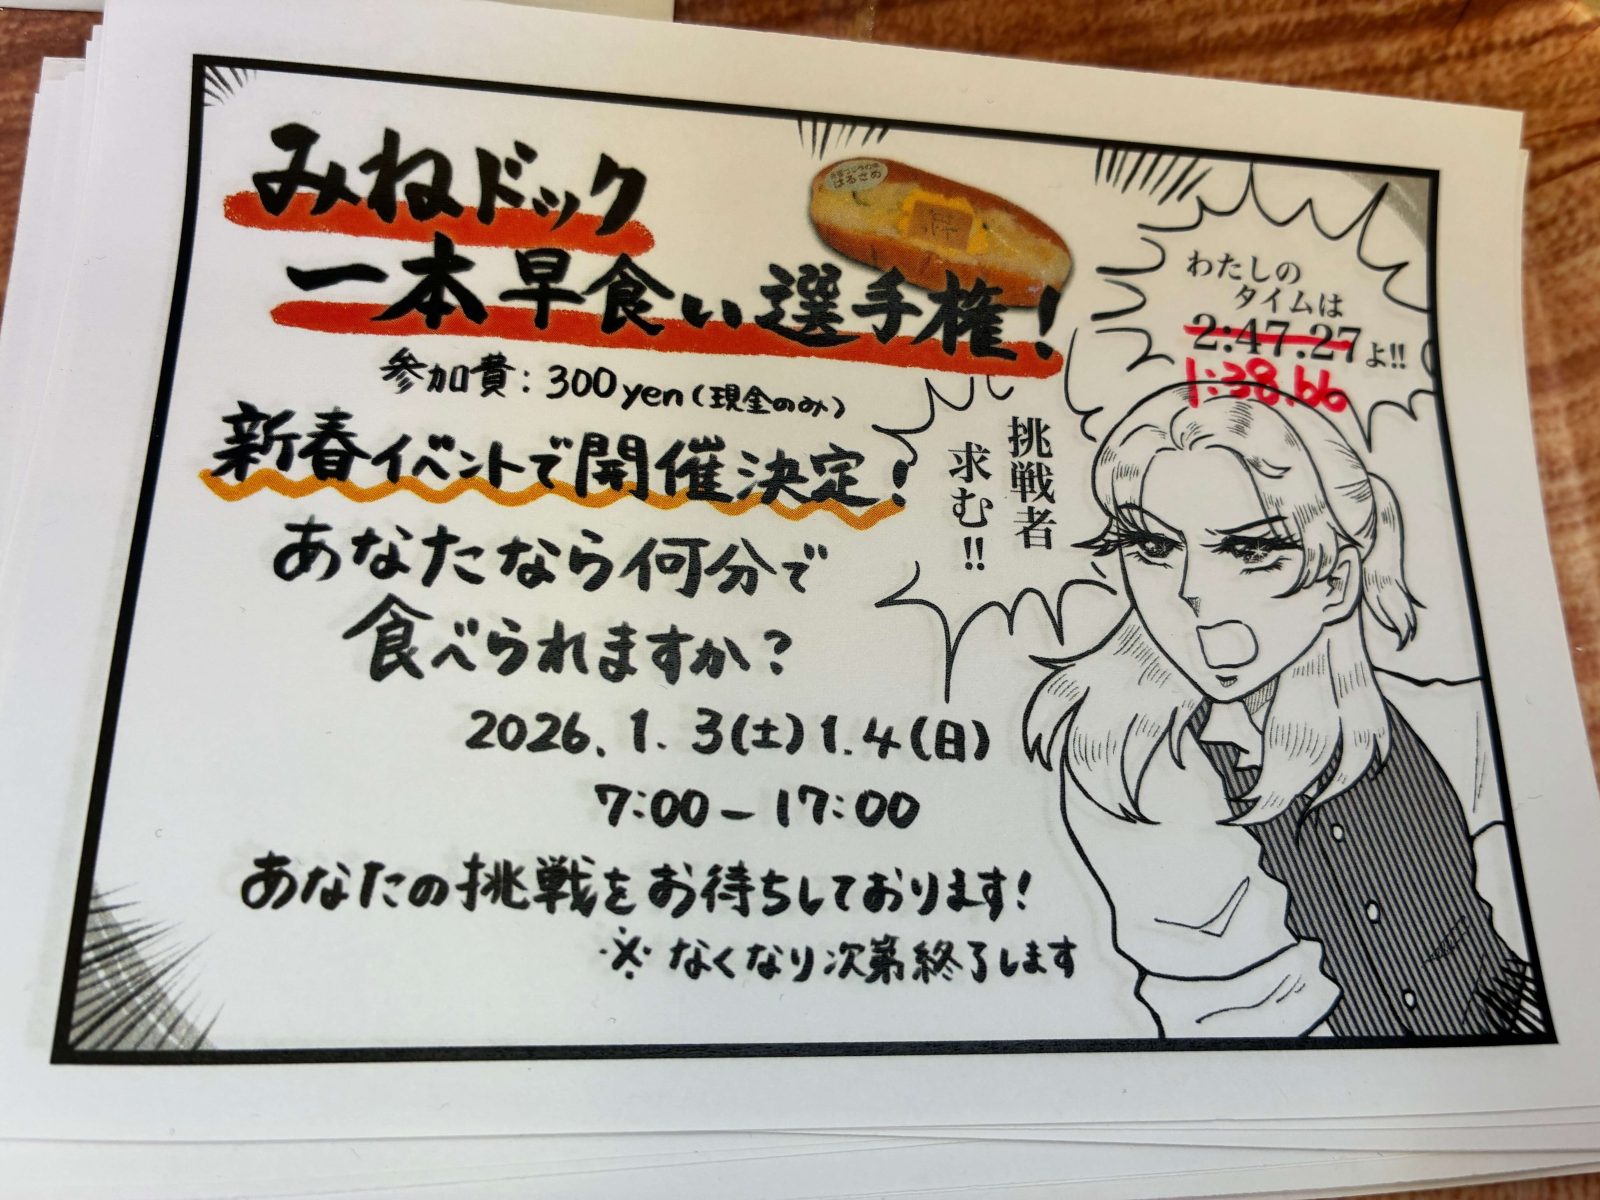 みねドック
一本早食い選手権!
はるさめ
参加費:300yen(現金のみ)
新春イベントで開催決定!
あなたなら何分で
食べられますか?
2026.1.3(土)1.4(日)
7:00-17:00
あなたの挑戦をお待ちしております!
※なくなり次第終了します
わたしの
タイムは
2:47.27よ!!
1:38.66
挑戦者
求む!!